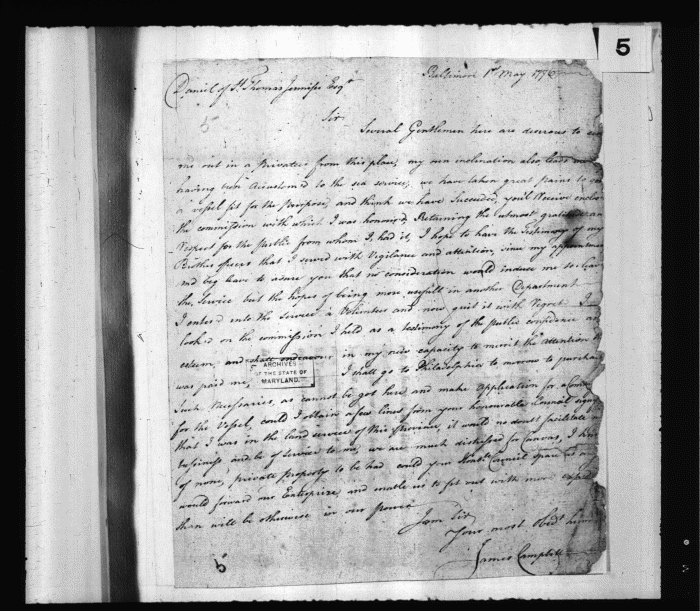 5
Baltimore 1st May 1776
Daniel of St. Thomas Jennifer Esqr
Sir
Several Gentlemen here are desirous to
me out in a Privateer from this place, my own inclination also leads
having been accustomed to the sea service, we have taken great pains to
a vessel fit for the purpose, and think we have succeeded, you'll Receive
the commission with which I was honoured, Retaining the utmost gratitude
Respect for the public from whom I had it, I hope to have the Testimony of my
Brother officers that I served with Vigilance and attention, since my appointment
and beg leave to assure you that no consideration would induce me to
the Service but the hopes of being more usefull in another Department
I entered into the Service a Volunteer and now quit it with Regret I
looked on the commission I held as a testimony of the public confidence
esteem, and shall endeavour in my new capacity to merit the attention
was paid me, I shall go to Philadelphia to morrow to purchase
ARCHIVES
OF THE STATE OF
MARYLAND.
Such Necessaries, as cannot be got here and make application for a
for the Vessel, could I obtain a few lines from your honourable Council
that I was in the land service of this province, it would no doubt facilitate
business and be of service to me, we are much distressed for Canvas, I
of none, private property to be had could you Honble Council spare us
would forward our Enterprize, and enable us to fit out with more
than will be otherwise in our power
I am Sir
Your most Obedt
James Campbell